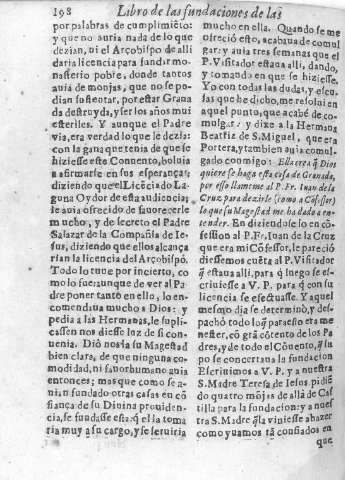 198 Libro de las fundaciones de las
por palabras de cumplimiẽto:
y que no auria nada de lo que
dezian, ni el Arçobispo de alli
daria licencia para fundar mo-
nasterio pobre, donde tantos
auia de monjas, que no se po-
dian sustentar, por estar Grana
da destruyda, y ser los años muy
esteriles. Y aunque el Padre
via, era verdad lo que le dezia:
con la gana que tenia de que se
hiziesse este Conuento, boluia
a afirmarse en sus esperanças;
diziendo que el Licẽciado La-
guna Oydor de esta audiencia,
le auia ofrecido de fauorecerle
mucho, y de secreto el Padre
Salazar de la Compañia de Ie-
sus, diziendo que ellos alcança
rian la licencia del Arçobispo.
Todo lo tuue por incierto, co
mo lo fue: aunque de ver al Pa
dre poner tanto en ello, lo en-
comendaua mucho a Dios: y
pedia a las Hermanas, le supli-
cassen nos diesse luz de si con-
uenia. Dio nosla su Magestad
bien clara, de que ninguna co-
modidad, ni fauor humano auia
entonces; mas que como se a-
uiã fundado otras casas en cõ
fiança de su Diuina prouiden-
cia, se fundasse esta: q̃ el la toma
ria muy a su cargo, y se seruiria
mucho en ella. Quando se me
ofreciò esto, acabaua de comul
gar: y auia tres semanas que el
P. Visitador estaua alli, dando,
y tomando en que se hiziesse.
Yo con todas las dudas, y escu-
sas que he dicho, me resolui en
aquel punto, que acabè de co-
mulgar: y dixe a la Hermana
Beatriz de S. Miguel, que era
Portera, y tambien auia comul-
gado conmigo: Ella crea q̃ Dios
quiere se haga esta casa de Granada,
por esso llameme al P. Fr. Iuan de la
Cruz para dezirle (como a Cõfessor)
lo que su Magestad me ha dado a en-
tender. En diziendoselo en cõ-
fession al P. Fr. Iuan de la Cruz
que era mi Cõfessor, le pareciò
diessemos cuẽta al P. Visitador
q̃ estaua alli, para q̃ luego se el-
criuiesse a V. P. para q̃ con su
licencia se efectuasse. Y aquel
mesmo dia se determinò, y des-
pachò todo lo q̃ para esto era me
nester, cõ grã cõtento de los Pa
dres, y de todo el Cõuento, q̃ su
po se concertaua la fundacion
Escriuimos a V. P. y a nuestra
S. Madre Teresa de Iesus pidiẽ
do quatro mõjas de allà de Cas
tilla para la fundacion: y a nues
tra S. Madre q̃ la viniesse abazer
como yuamos tã confiados en
que